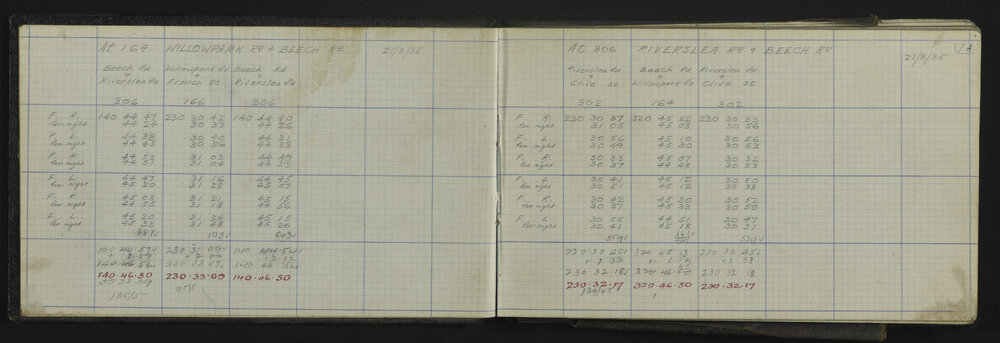 At 164 WILLOWPARK RD & BEECH RD 21/3/35
Beech Rd Willowpark Rd Beech Rd
& & &
Riverslea Rd French St Riverslea Rd
306 166 306
F. R. 140 44 47 230 30 42 140 44 40
Rev night 44 24 30 33 44 26
F. L. 44 38 30 40 44 31
Rev night 44 45 30 56 44 38
F. R. 44 53 31 03 44 49
Rev night 44 51 31 04 44 55
F. L. 44 47 31 16 44 45
Rev night 45 20 31 28 45 07
F. R. 45 08 31 21 45 15
Rev night 44 55 31 18 44 56
F. L. 45 20 31 36 45 15
Rev night 45 33 31 48 45 26
140 44 57 230 31 09 140
+ 2 00
140 46 56 230 33 07 140 46
140.46.50 230.33.09 140.46.50
135/5
At 306 RIVERSLEA RD & BEECH RD 1A
21/3/35
Riverslea Rd Beech Rd Riverslea Rd
& & &
Clive St Willowpark Rd Clive St
302 164 302
F. R. 230 30 37 320 45 22 230 30 33
Rev night 31 05 45 08 30 56
F. L. 30 56 45 10 30 56
Rev night 30 44 45 30 30 52
F. R. 30 33 45 07 30 32
Rev night 30 37 44 48 30 33
F. L. 30 41 45 12 30 50
Rev night 30 51 45 12 30 38
F. R. 30 42 45 30 30 52
Rev night 30 57 45 33 30 59
F. L. 30 55 44 51 30 47
Rev night 30 41 45 18 30 31
559
230 30 320 45 13 230 30
230 32 18 320 46 230 32 18
230.32.17 320.46.50 230.32.17